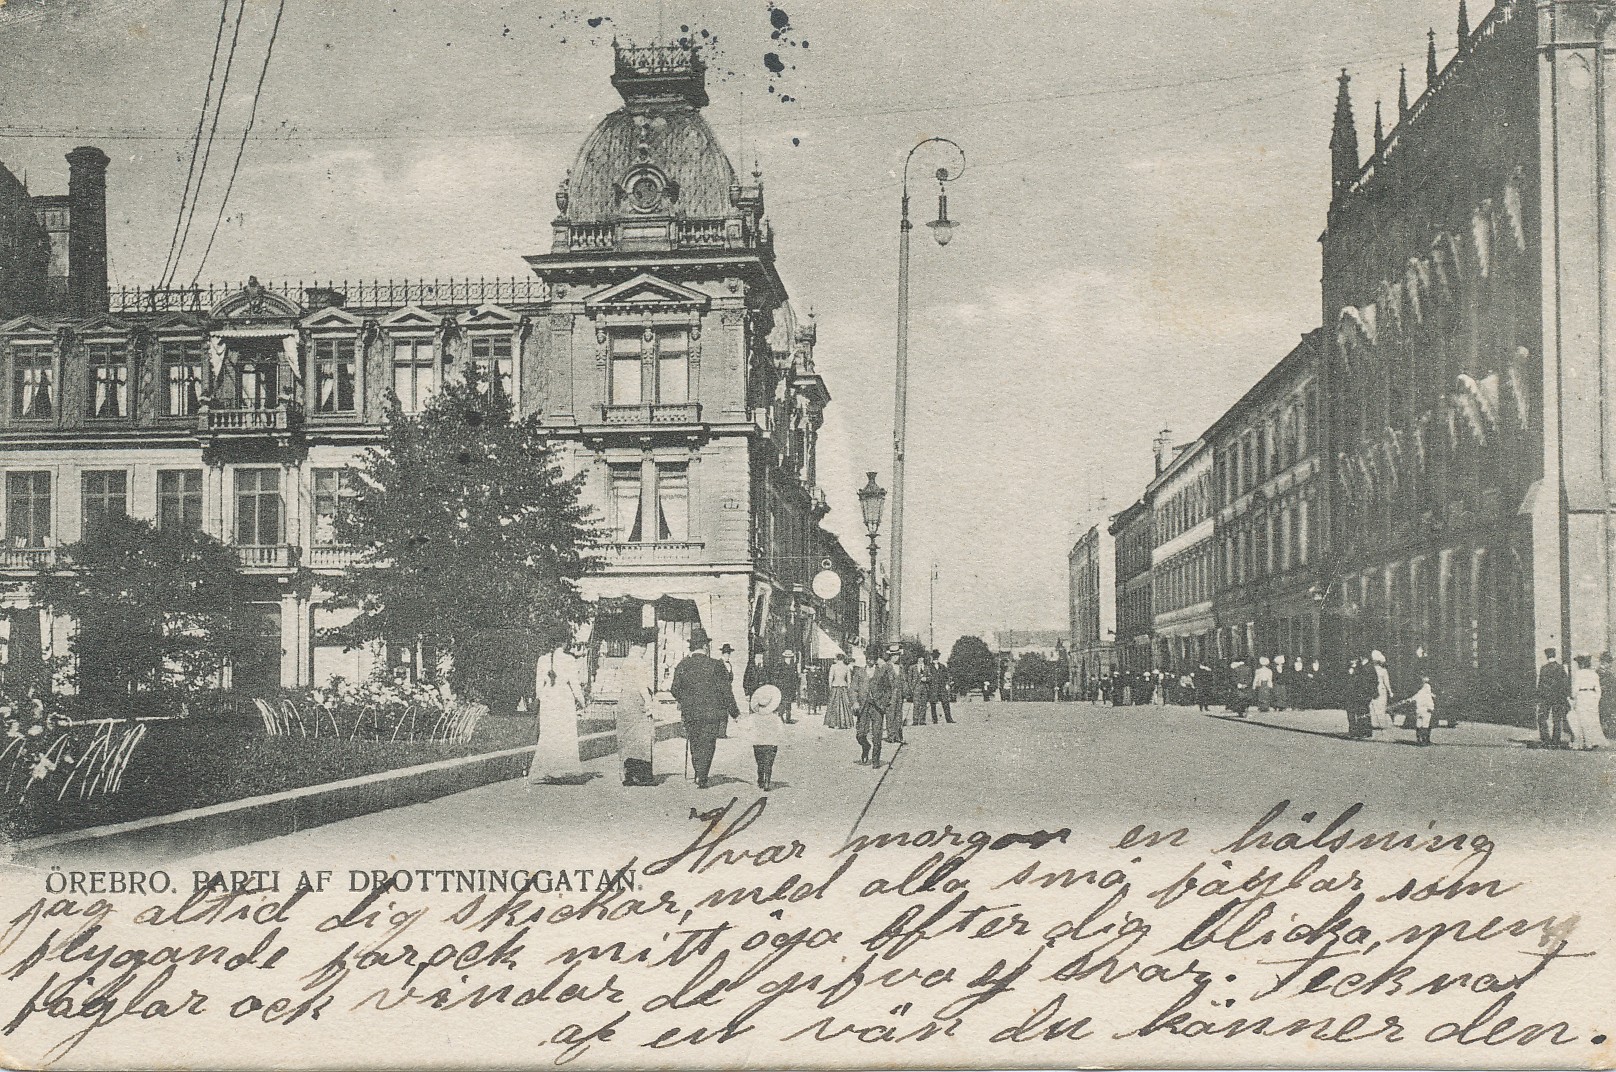 Hvar morgon en hälsning
ÖREBRO. PARTI AF DROTTNINGGATAN.
jag altid dig skickar, med alla små fåglar som
flygande far, ock mitt öga äfter dig blicka, men
fåglar ock vindar de gifva ej svar. Tecknat
af en vän du känner den.